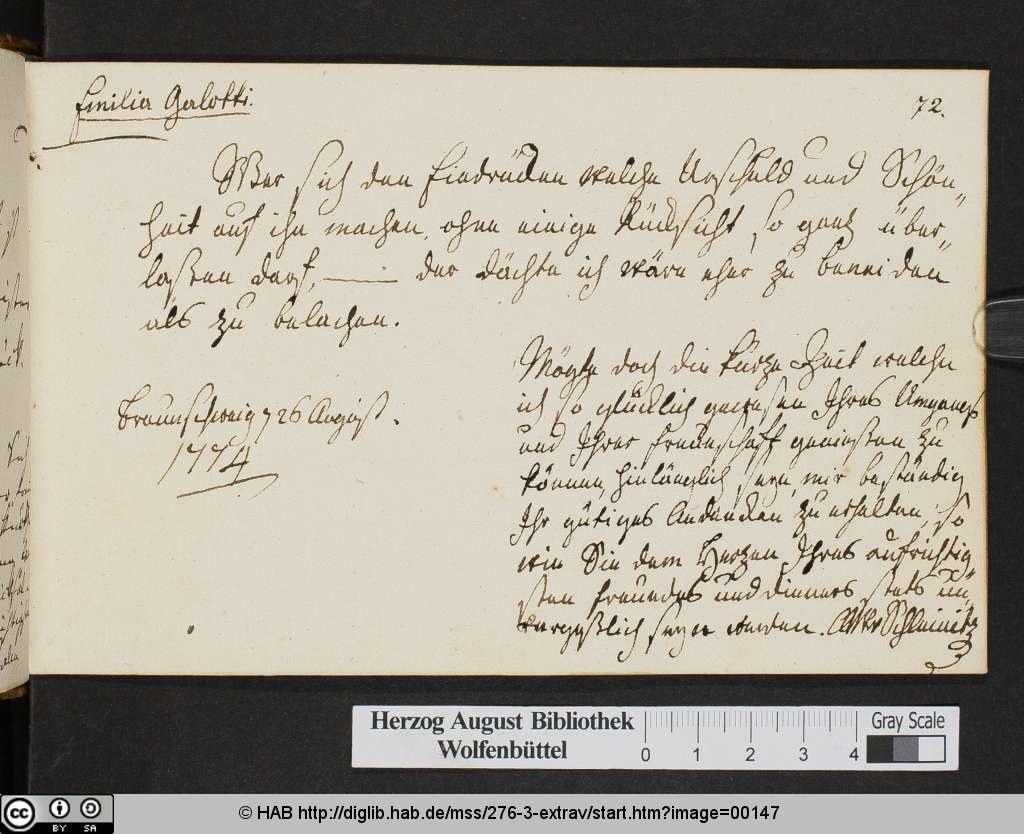 Emilia Galotti.
72.
Wer sich den Eindrücken welche Unschuld und Schön„
heit auf ihn machen, ohne einige Rücksicht, so gantz über„
laßen darf, —— der dächte ich wäre eher zu beneiden
als zu belachen.
Braunschweig 26 August.
1774
Mögte doch die kurze Zeit welche
ich so glücklich gewesen Ihres Umgangs
und Ihrer Freundschaft geniessen zu
können, hinlänglich seyn, mir beständig
Ihr gütiges Andencken zu erhalten, so
wie Sie dem Hertzen Ihres aufrichtig
sten Freundes und Dieners stets un„
vergeßlich seyn werden. Schleinitz
Herzog August Bibliothek
Wolfenbüttel
0 1 2 3 4
Gray Scale
cc BY SA
© HAB http://diglib.hab.de/mss/276-3-extrav/start.htm?image=00147